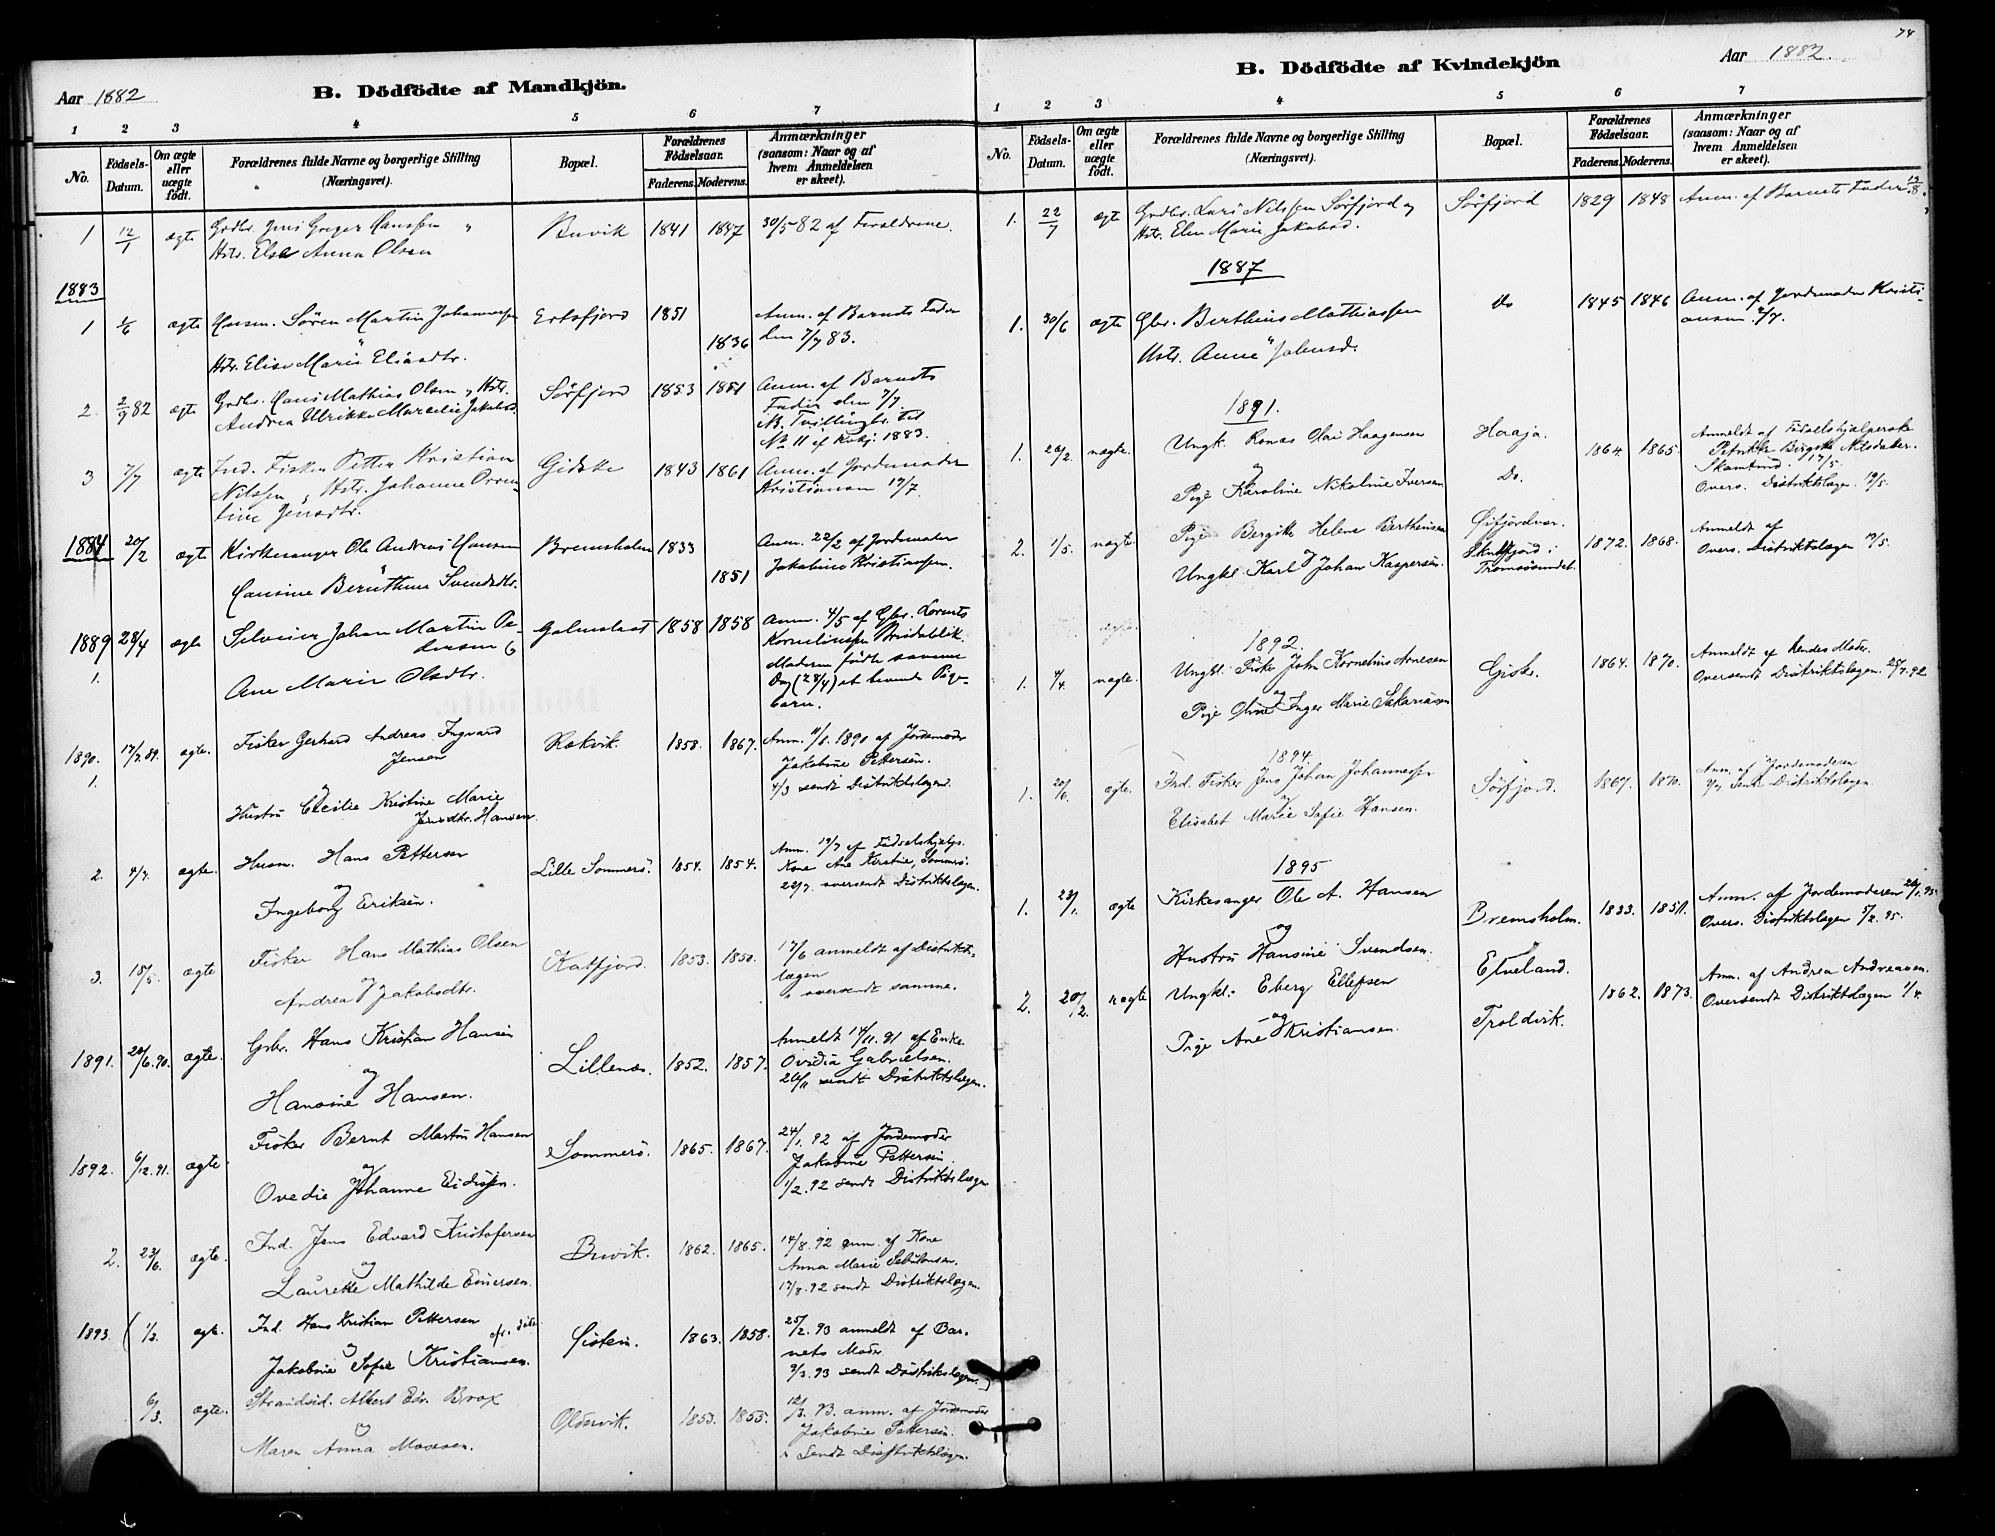 Aar 1882
B. Dödfödte af Mandkjön.
1 2 3 4 5 6 7
No.
Födsels-
Datum.
Om ægte
eller
uægte
födt.
Forældrenes fulde Navne og borgerlige Stilling
(Næringsvei).
Bopæl.
Forældrenes
Födselsaar.
Faderens. Moderens.
Anmærkninger
(saasom: Naar og af
hvem Anmeldelsen
er skeet).
1 12/1 ægte Grdbr. Jens Greger Hanssen Buvik 1841 1847 30/5 82 af Forældrene.
Hstr. Else Anna Olsen
1883
1 1/6 ægte Husm. Sören Martin Johannessen Ersfjord 1851 Anm. af Barnets Fader
1836 den 7/7 83.
Hstr. Elise Marie Eliasdtr.
2. 2/9 82 ægte Grdbr. Hans Mathias Olsen, Hstr. Sörfjord 1853 1851 Anm. af Barnets
Andrea Ulrikke Marselie Jakobsd. Fader den 7/7.
NB. Tvillingbr. til
No 11 af Kvkj. 1883.
3 7/7 ægte Ind. Fisker Petter Kristian Gidske 1843 1861 Anm. af Jordemoder
Nilssen, Hstr. Johanne Oven- Kristiansen 19/7.
tine Jensdtr.
1884 20/2 ægte Kirkesanger Ole Andreas Hansen Bremsholm 1833 Anm. 22/2 af Jordemoder
1851 Jakobine Kristiansen.
Hansine Beruthine Svendsdtr.
1889 28/4 ægte Selveier Johan Martin Pe- Galmstast 1858 1858 Anm. 4/5 af Gbr. Lorents
1. dersen Korneliussen Breidablik.
Ane Marie Olsdtr. Moderen fødte samme
Dag (28/4) et levende Pige-
barn.
1890. 17/7.89. ægte. Fisker Gerhard Andreas Ingvard Rekvik. 1858. 1867. Anm. 11/1. 1890 af Jordemoder
1. Jensen Jakobine Pettersen.
4/3 sendt Distriktslægen.
Hustru Cecilie Kristine Marie
Jensdtr. Hansen
2. 4/4. ægte. Husm. Hans Pettersen Lille Sommerö. 1854. 1854. Anm. 19/7 af Fødselshjælps.
og Kone Ane Kirstine, Sommerö.
Ingeborg Eriksen. 22/7. oversendt Distriktslægen.
3. 15/5. ægte Fisker Hans Mathias Olsen Katfjord. 1853. 1850. 17/6 anmeldt af Distrikts-
og lægen
Andrea Jakobsdtr. oversendt samme.
1891. 20/6.90. ægte. Gbr. Hans Kristian Hansen Lillenes. 1852. 1857. Anmeldt 14/11.91 af Enke
og Ovidia Gabrielsen.
Hansine Hansen. 26/11 sendt Distriktslægen.
1892. 6/12.91. ægte. Fisker Bernt Martin Hansen Sommerö. 1865. 1867. 24/1.92 af Jordemoder
og Jakobine Pettersen.
Ovedie Johanne Eidissen. 1/2.92 sendt Distriktslægen
2. 23/6. ægte. Ind. Jens Edvard Kristofersen Buvik. 1862. 1865. 14/8.92 anm. af Kone
og Anna Marie
Laurette Mathilde Einersen. 17/8.92 sendt Distriktslægen.
1893. 1/3. ægte. Ind. Hans Kristian Pettersen 1863. 1858. 25/2.93 anmeldt af Bar-
og nets Moder
Jakobine Sofie Kristiansen. 2/3.93 sendt Distriktslægen.
6/3. ægte. Strandsid. Albert Edv. Brox Oldervik. 1853. 1855. 12/3. 93. anm. af Jordemoder
og Jakobine Pettersen.
Maren Anna Mossesen. Sendt Distriktslægen.
74
B. Dödfödte af Kvindekjön
Aar 1882.
1 2 3 4 5 6 7
No.
Födsels-
Datum.
Om ægte
eller
uægte
födt.
Forældrenes fulde Navne og borgerlige Stilling
(Næringsvei).
Bopæl.
Forældrenes
Födselsaar.
Faderens. Moderens.
Anmærkninger
(saasom: Naar og af
hvem Anmeldelsen
er skeet).
1. 22/7 ægte Grdbr. Lars Nilssen Sörfjord og Sörfjord 1829 1848 Anm. af Barnets Fader 13/8.
Hstr. Elen Marie Jakobsd.
1887
1. 30/6 ægte Gbr. Berthius Mathiassen Do 1845 1846 Anm. af Jordemoder Kristi-
Hstr. Anne Johnsd. ansen 2/7.
1891.
1. 20/2. uægte. Ungk. Ronas Olai Haagensen Haaja. 1864. 1865. Anmeldt af Fødselshjælperske
og Petrikke Birgitte Nilsdatter
Pige Karoline Nikoline Iversen Do. 17/5.
Overs. Distriktslægen 19/5.
2. 1/5. uægte. Pige Bergitte Helene Berthinsen Öifjordvær. 1872. 1868. Anmeldt af
og Skulsfjord i Overs. Distriktslægen 19/5.
Ungkl. Karl Johan Kaspersen. Tromsösundet.
1892.
1. 4/4. uægte. Ungkl. Fisker John Kornelius Arnesen 1864. 1870. Anmeldt af hendes Moder.
og Oversendt Distriktslægen 25/7.92
Pige Oline Inger Marie Sakariasen
1894.
1. 20/6. ægte. Ind. Fisker Jens Johan Johannessen Sörfjord. 1867. 1870. Anm. af Jordemoderen
og 3/7 sendt Distriktslægen.
Elisabet Marie Sofie Hansen.
1895
1. 23/1. ægte Kirkesanger Ole A. Hansen Bremsholm. 1833. 1851. Anm. af Jordemoderen 26/1.95.
og Overs. Distriktslægen 5/2.95.
Hustru Hansine Svendsen.
2. 20/2. uægte Ungkl. Eberg Ellefsen Elveland. 1862. 1873. Anm. af Andrea Andreasen.
og Oversendt Distriktslægen 1/4.
Pige Ane Kristiansen. Troldvik.